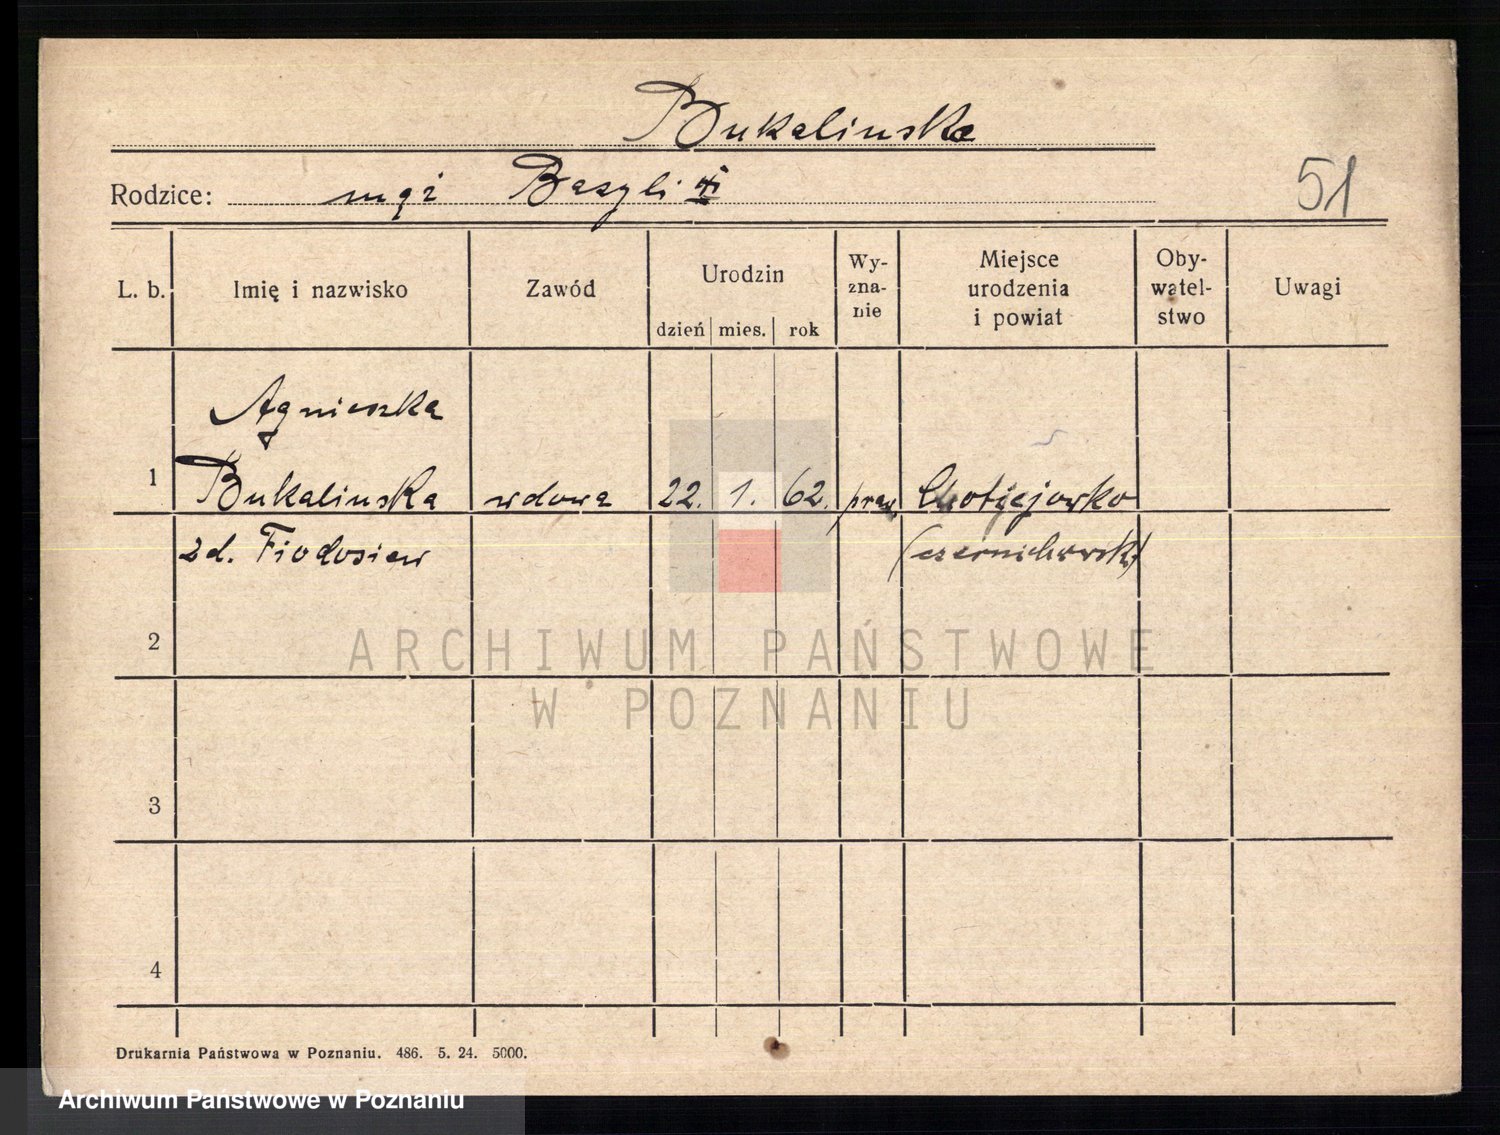 Bukalinska
51
Rodzice: mąż Bazyli
L. b. Imię i nazwisko Zawód Urodzin dzień mies. rok Wy-zna-nie Miejsce urodzenia i powiat Oby-watel-stwo Uwagi
Agnieszka
1 Bukalinska wdowa 22. 1. 62. praw.
zd. Fiodosiew
2
3
4
ARCHIWUM PAŃSTWOWE
W POZNANIU
Drukarnia Państwowa w Poznaniu. 486. 5. 24. 5000.
Archiwum Państwowe w Poznaniu